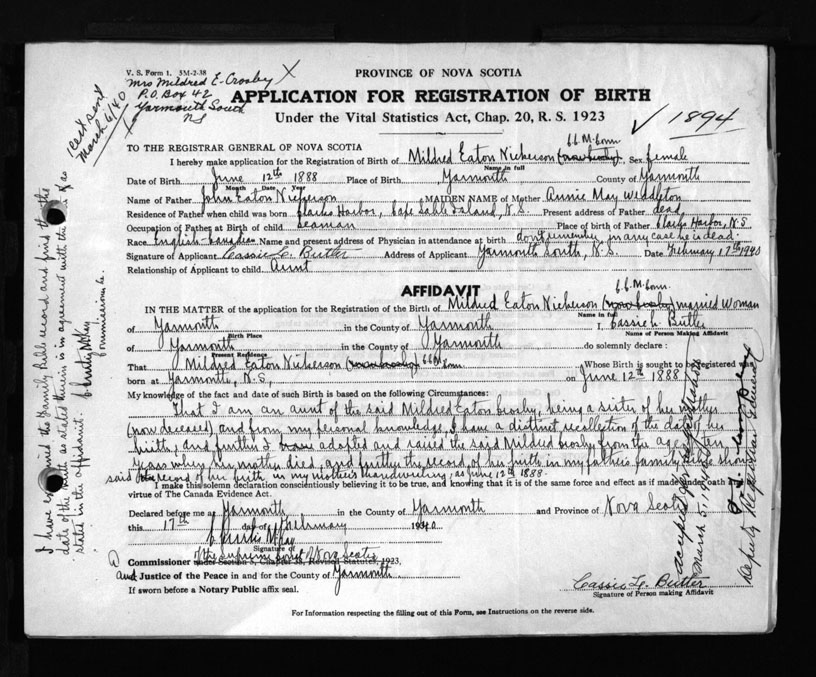 V. S. Form 1. 3M-2-38
Mrs Mildred E. Crosby X
P.O. Box 42
Yarmouth South
NS
March 6/40
PROVINCE OF NOVA SCOTIA
APPLICATION FOR REGISTRATION OF BIRTH
Under the Vital Statistics Act, Chap. 20, R. S. 1923
✓ 1894
TO THE REGISTRAR GENERAL OF NOVA SCOTIA
I hereby make application for the Registration of Birth of Mildred Eaton Nickerson (now Crosby) Sex female
Name in full
Date of Birth June 12th 1888 Place of Birth Yarmouth County of Yarmouth
Month Date Year
Name of Father John Eaton Nickerson MAIDEN NAME of Mother Annie May Weddleton
Residence of Father when child was born Clarks Harbor, Cape Sable Island, N.S. Present address of Father dead
Occupation of Father at Birth of child seaman Place of birth of Father Clarks Harbor, N.S
Race English-Canadian Name and present address of Physician in attendance at birth dont remember in any case he is dead.
Signature of Applicant Cassie L. Butler Address of Applicant Yarmouth South, N.S. Date February 17th 1940
Relationship of Applicant to child Aunt
AFFIDAVIT
IN THE MATTER of the application for the Registration of the Birth of Mildred Eaton Nickerson (now Crosby) married Woman
Name in full
of Yarmouth in the County of Yarmouth I, Cassie L. Butler
Birth Place Name of Person Making Affidavit
of Yarmouth in the County of Yarmouth do solemnly declare:
Present Residence
That Mildred Eaton Nickerson (now Crosby) Whose Birth is sought to be registered was
born at Yarmouth, N.S., on June 12th 1888
My knowledge of the fact and date of such Birth is based on the following Circumstances:
That I am an aunt of the said Mildred Eaton Crosby, being a sister of her mother
(now deceased) and from my personal knowledge, I have a distinct recollection of the date of her
birth, and further I have adopted and raised the said Mildred Crosby from the age of ten
years when her mother died, and further the record of her birth in my father's family Bible shows
said the record of her birth in my mother's handwriting, as June 12th 1888.
I make this solemn declaration conscientiously believing it to be true, and knowing that it is of the same force and effect as if made under oath and by
virtue of The Canada Evidence Act.
Declared before me at Yarmouth in the County of Yarmouth and Province of Nova Scotia
this 17th day of February 1940
Signature of
of the Supreme Court of Nova Scotia
A Commissioner under Section 8, Chapter 38, Revised Statutes, 1923,
and Justice of the Peace in and for the County of Yarmouth
If sworn before a Notary Public affix seal.
Cassie L. Butler
Signature of Person making Affidavit
For Information respecting the filling out of this Form, see Instructions on the reverse side.
I have examined the Family Bible record and find that the
date of the birth as stated therein is in agreement with the date of as
stated in the affidavit.
Commissioner &c.
Accepted for registration
March 5, 1940
Deputy Registrar General